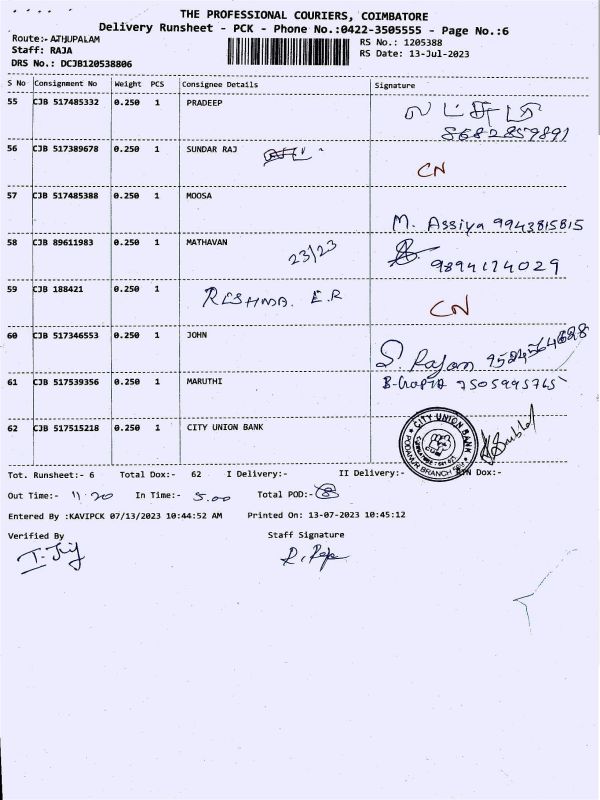 THE PROFESSIONAL COURIERS, COIMBATORE
Delivery Runsheet - PCK - Phone No.:0422-3505555 - Page No.:6
Route:- ATHUPALAM
RS No.: 1205388
Staff: RAJA
RS Date: 13-Jul-2023
DRS No.: DCJB120538806
S No Consignment No Weight PCS Consignee Details Signature
55 CJB 517485332 0.250 1 PRADEEP
8682859891
56 CJB 517389678 0.250 1 SUNDAR RAJ CN
57 CJB 517485388 0.250 1 MOOSA
M. Assiya 9943815815
58 CJB 89611983 0.250 1 MATHAVAN
23/23 9894174029
59 CJB 188421 0.250 1 RESHMA. E.R CN
60 CJB 517346553 0.250 1 JOHN
S. Rajan
61 CJB 517539356 0.250 1 MARUTHI 7505995765
62 CJB 517515218 0.250 1 CITY UNION BANK
CITY UNION BANK
BRANCH
Tot. Runsheet:- 6 Total Dox:- 62 I Delivery:- II Delivery:- Dox:-
Out Time:- 11.20 In Time:- 5.00 Total POD:- 8
Entered By :KAVIPCK 07/13/2023 10:44:52 AM Printed On: 13-07-2023 10:45:12
Verified By Staff Signature